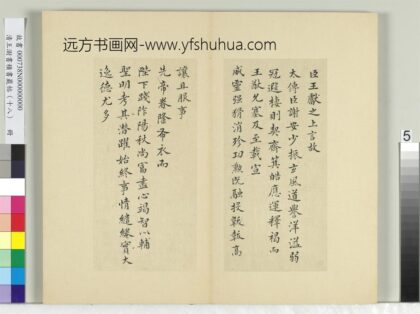 远方书画网-www.yfshuhua.com
故書 000738N000000000
臣王獻之上言故
太傅臣謝安少振玄風道譽洋溢弱
冠遐棲則契齊箕皓應運釋褐而
王猷允塞及至載宣
威靈强猾消殄功勲既融投韍高
讓且服事
先帝眷隆布衣
陛下踐阼陽秋尚富盡心竭智以輔
聖明考其潛躍始終事情繾綣實大
逸德尤多
5